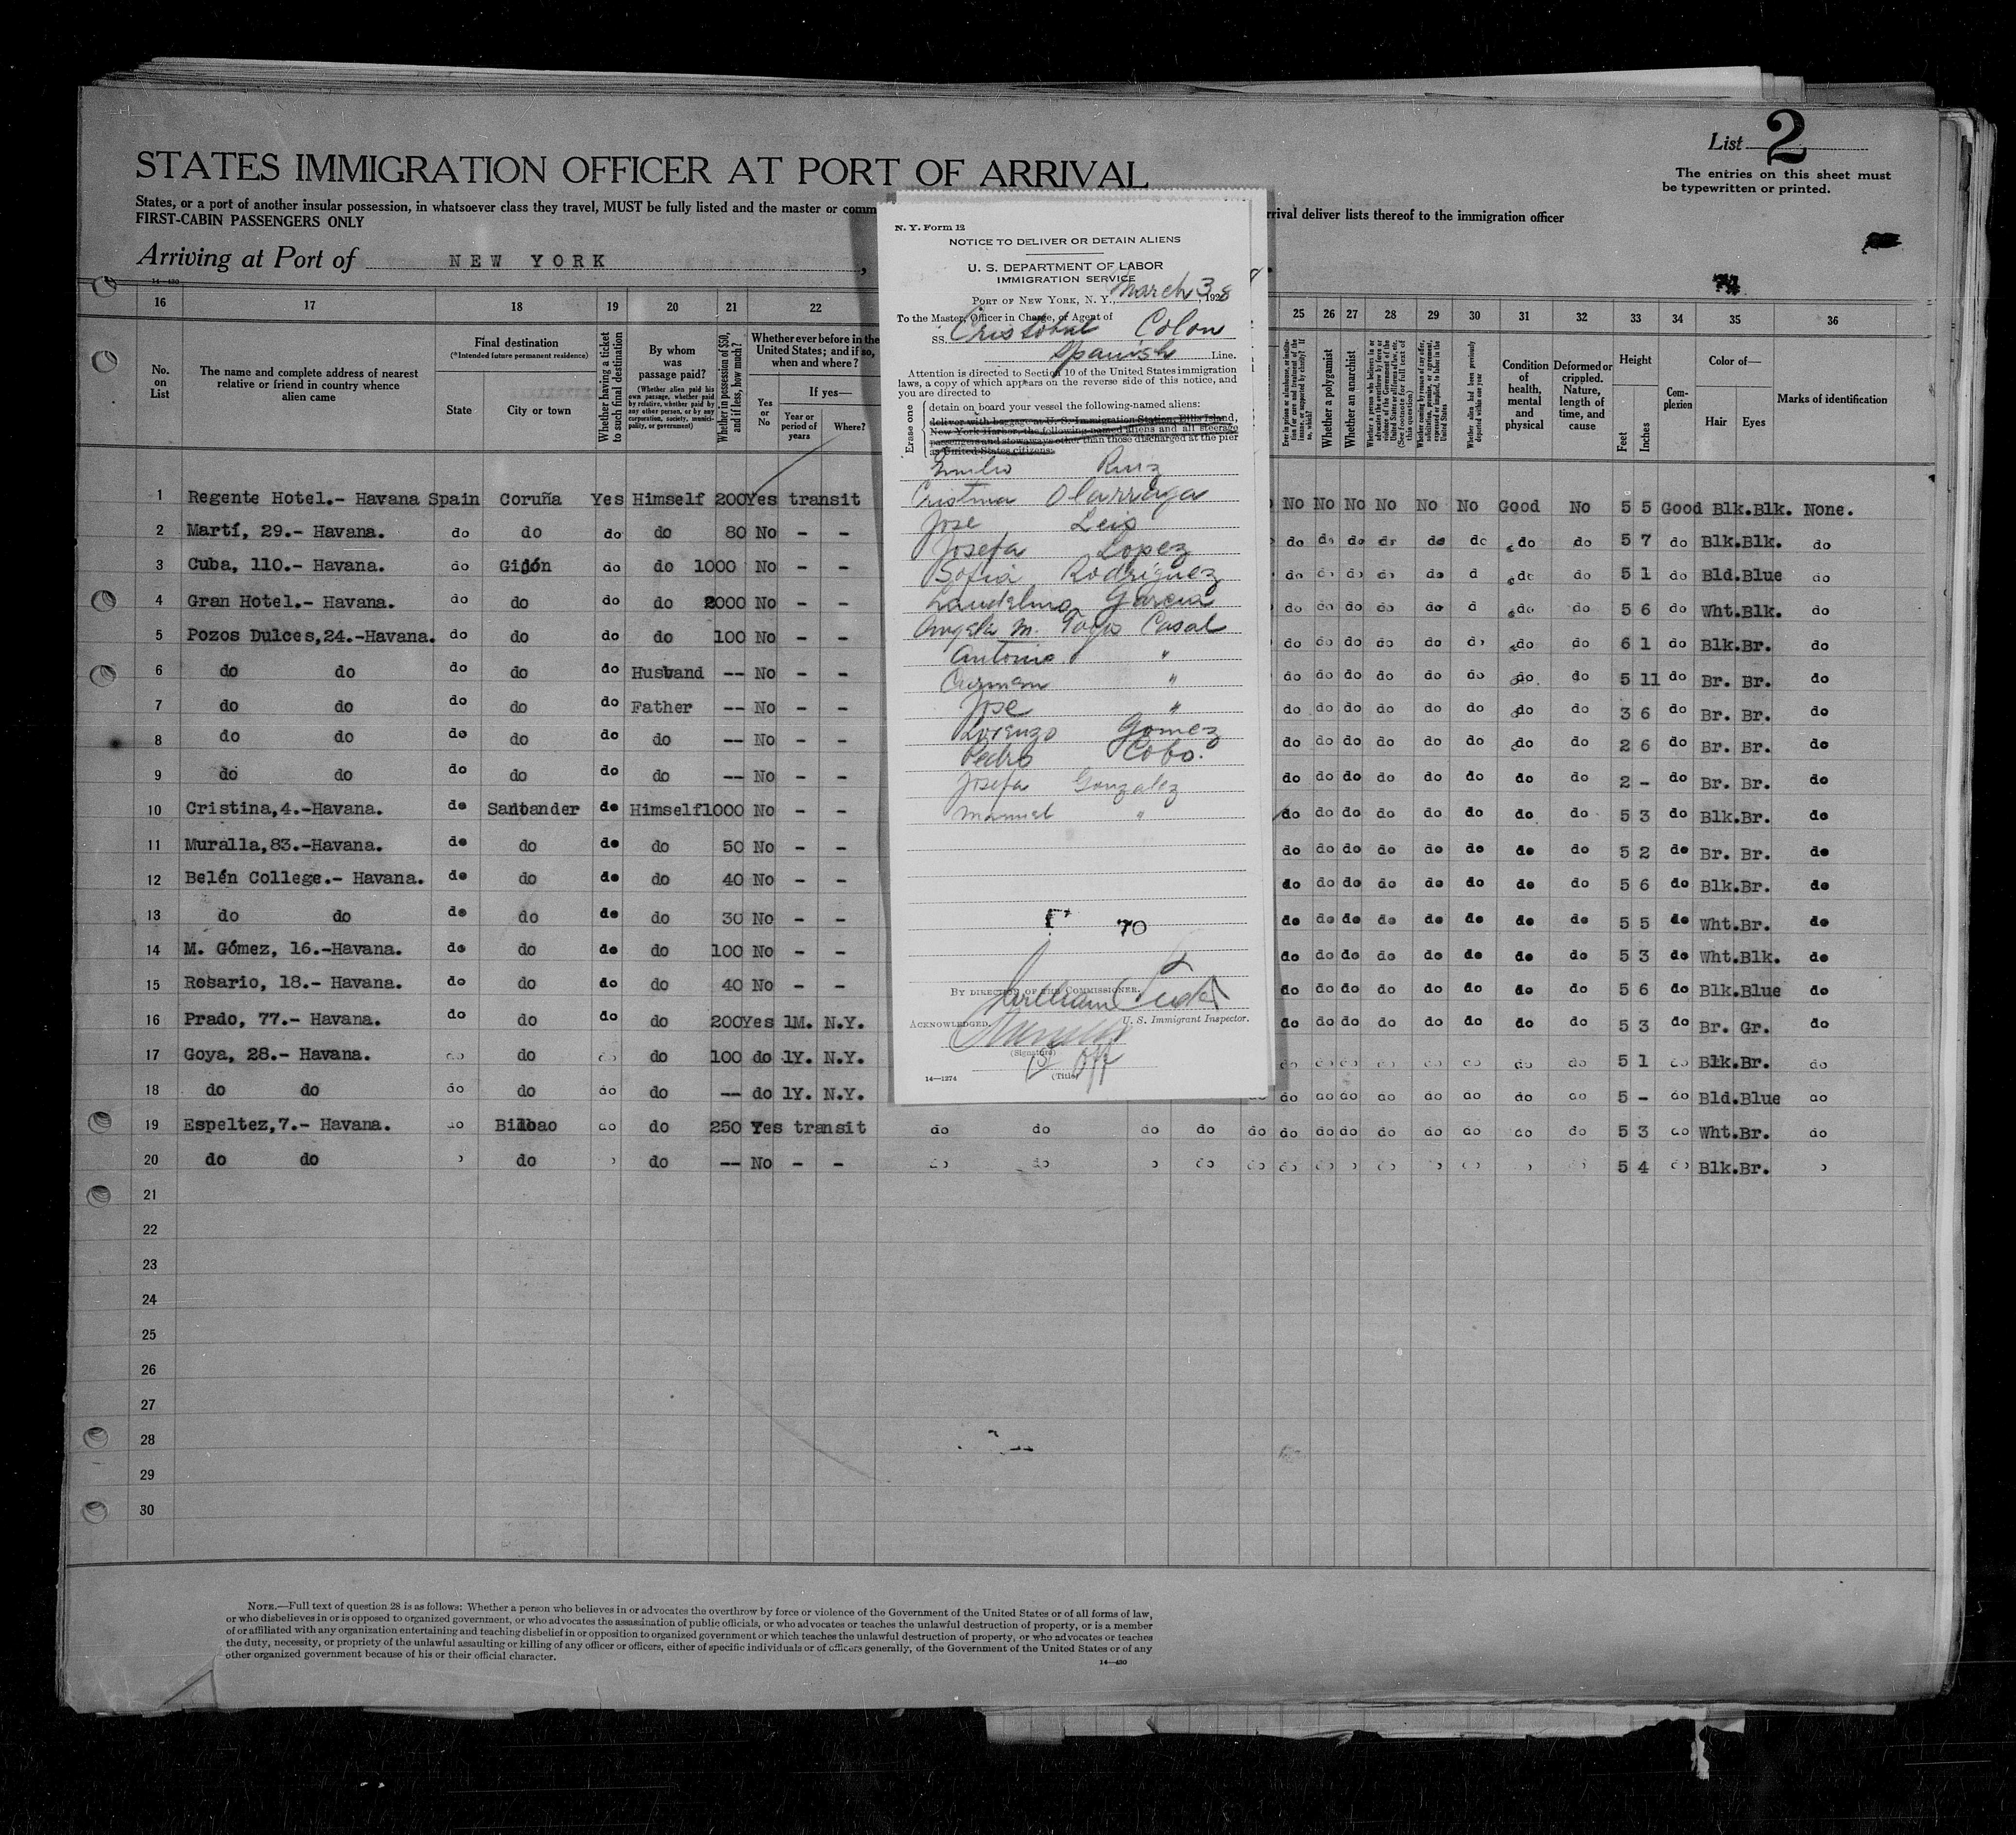 List 2
The entries on this sheet must
be typewritten or printed.
STATES IMMIGRATION OFFICER AT PORT OF ARRIVAL
States, or a port of another insular possession, in whatsoever class they travel, MUST be fully listed and the master or comm
rrival deliver lists thereof to the immigration officer
FIRST-CABIN PASSENGERS ONLY
Arriving at Port of NEW YORK,
14—430
16 17 18 19 20 21 22
No. on List
The name and complete address of nearest relative or friend in country whence alien came
Final destination
(*Intended future permanent residence)
State City or town
Whether having a ticket to such final destination
By whom was passage paid?
(Whether alien paid his own passage, whether paid by relative, whether paid by any other person, or by any corporation, society, municipality, or government)
Whether in possession of $50, and if less, how much?
Whether ever before in the United States; and if so, when and where?
Yes or No
If yes—
Year or period of years
Where?
1 Regente Hotel.- Havana Spain Coruña Yes Himself 200 Yes transit
2 Martí, 29.- Havana. do do do do 80 No - -
3 Cuba, 110.- Havana. do Gijón do do 1000 No - -
4 Gran Hotel.- Havana. do do do do 2000 No - -
5 Pozos Dulces,24.-Havana. do do do do 100 No - -
6 do do do do do Husband -- No - -
7 do do do do do Father -- No - -
8 do do do do do do -- No - -
9 do do do do do do -- No - -
10 Cristina,4.-Havana. do Santander do Himself 1000 No - -
11 Muralla,83.-Havana. do do do do 50 No - -
12 Belén College.- Havana. do do do do 40 No - -
13 do do do do do do 30 No - -
14 M. Gómez, 16.-Havana. do do do do 100 No - -
15 Rosario, 18.- Havana. do do do do 40 No - -
16 Prado, 77.- Havana. do do do do 200 Yes 1M. N.Y.
17 Goya, 28.- Havana. do do do do 100 do 1Y. N.Y.
18 do do do do do do -- do 1Y. N.Y.
19 Espeltez,7.- Havana. do Bilbao do do 250 Yes transit do do do do do
20 do do do do -- No - - do do do do
21
22
23
24
25
26
27
28
29
30
N. Y. Form 12
NOTICE TO DELIVER OR DETAIN ALIENS
U. S. DEPARTMENT OF LABOR
IMMIGRATION SERVICE
PORT OF NEW YORK, N. Y., March 3, 1928
To the Master, Officer in Charge, or Agent of
SS. Cristobal Colon
Spanish Line.
Attention is directed to Section 10 of the United States immigration
laws, a copy of which appears on the reverse side of this notice, and
you are directed to
Erase one
detain on board your vessel the following-named aliens:
deliver with baggage at U. S. Immigration Station, Ellis Island,
New York Harbor, the following-named aliens and all steerage
passengers and stowaways other than those discharged at the pier
as United States citizens:
Emilio Ruiz
Cristina Olarriaga
Jose Leis
Josefa Lopez
Sofia Rodriguez
Laudelino Garcia
Angela M. Casal
Antonio "
Carmen "
Jose "
Lorenzo Gomez
Pedro Cobo.
Josefa Gonzalez
Manuel "
70
BY DIRECTION OF THE COMMISSIONER.
William
U. S. Immigrant Inspector.
ACKNOWLEDGED.
(Signature)
Off
(Title)
14—1274
25 26 27 28 29 30 31 32 33 34 35 36
Whether a polygamist
Whether an anarchist
Condition of health, mental and physical
Deformed or crippled. Nature, length of time, and cause
Height
Feet Inches
Complexion
Color of—
Hair Eyes
Marks of identification
No No No No No No Good No 5 5 Good Blk.Blk. None.
do do do do do do do do 5 7 do Blk.Blk. do
do do do do do d do do 5 1 do Bld.Blue do
do do do do do d do do 5 6 do Wht.Blk. do
do do do do do do do do 6 1 do Blk.Br. do
do do do do do do do do 5 11 do Br. Br. do
do do do do do do do do 3 6 do Br. Br. do
do do do do do do do do 2 6 do Br. Br. do
do do do do do do do do 2 - do Br. Br. do
do do do do do do do do 5 3 do Blk.Br. do
do do do do do do do do 5 2 do Br. Br. do
do do do do do do do do 5 6 do Blk.Br. do
do do do do do do do do 5 5 do Wht.Br. do
do do do do do do do do 5 3 do Wht.Blk. do
do do do do do do do do 5 6 do Blk.Blue do
do do do do do do do do 5 3 do Br. Gr. do
do do do do do do do do 5 1 do Blk.Br. do
do do do do do do do do 5 - do Bld.Blue do
do do do do do do do do 5 3 do Wht.Br. do
5 4 do Blk.Br.
NOTE.—Full text of question 28 is as follows: Whether a person who believes in or advocates the overthrow by force or violence of the Government of the United States or of all forms of law,
or who disbelieves in or is opposed to organized government, or who advocates the assassination of public officials, or who advocates or teaches the unlawful destruction of property, or is a member
of or affiliated with any organization entertaining and teaching disbelief in or opposition to organized government or which teaches the unlawful destruction of property, or who advocates or teaches
the duty, necessity, or propriety of the unlawful assaulting or killing of any officer or officers, either of specific individuals or of officers generally, of the Government of the United States or of any
other organized government because of his or their official character.
14—430